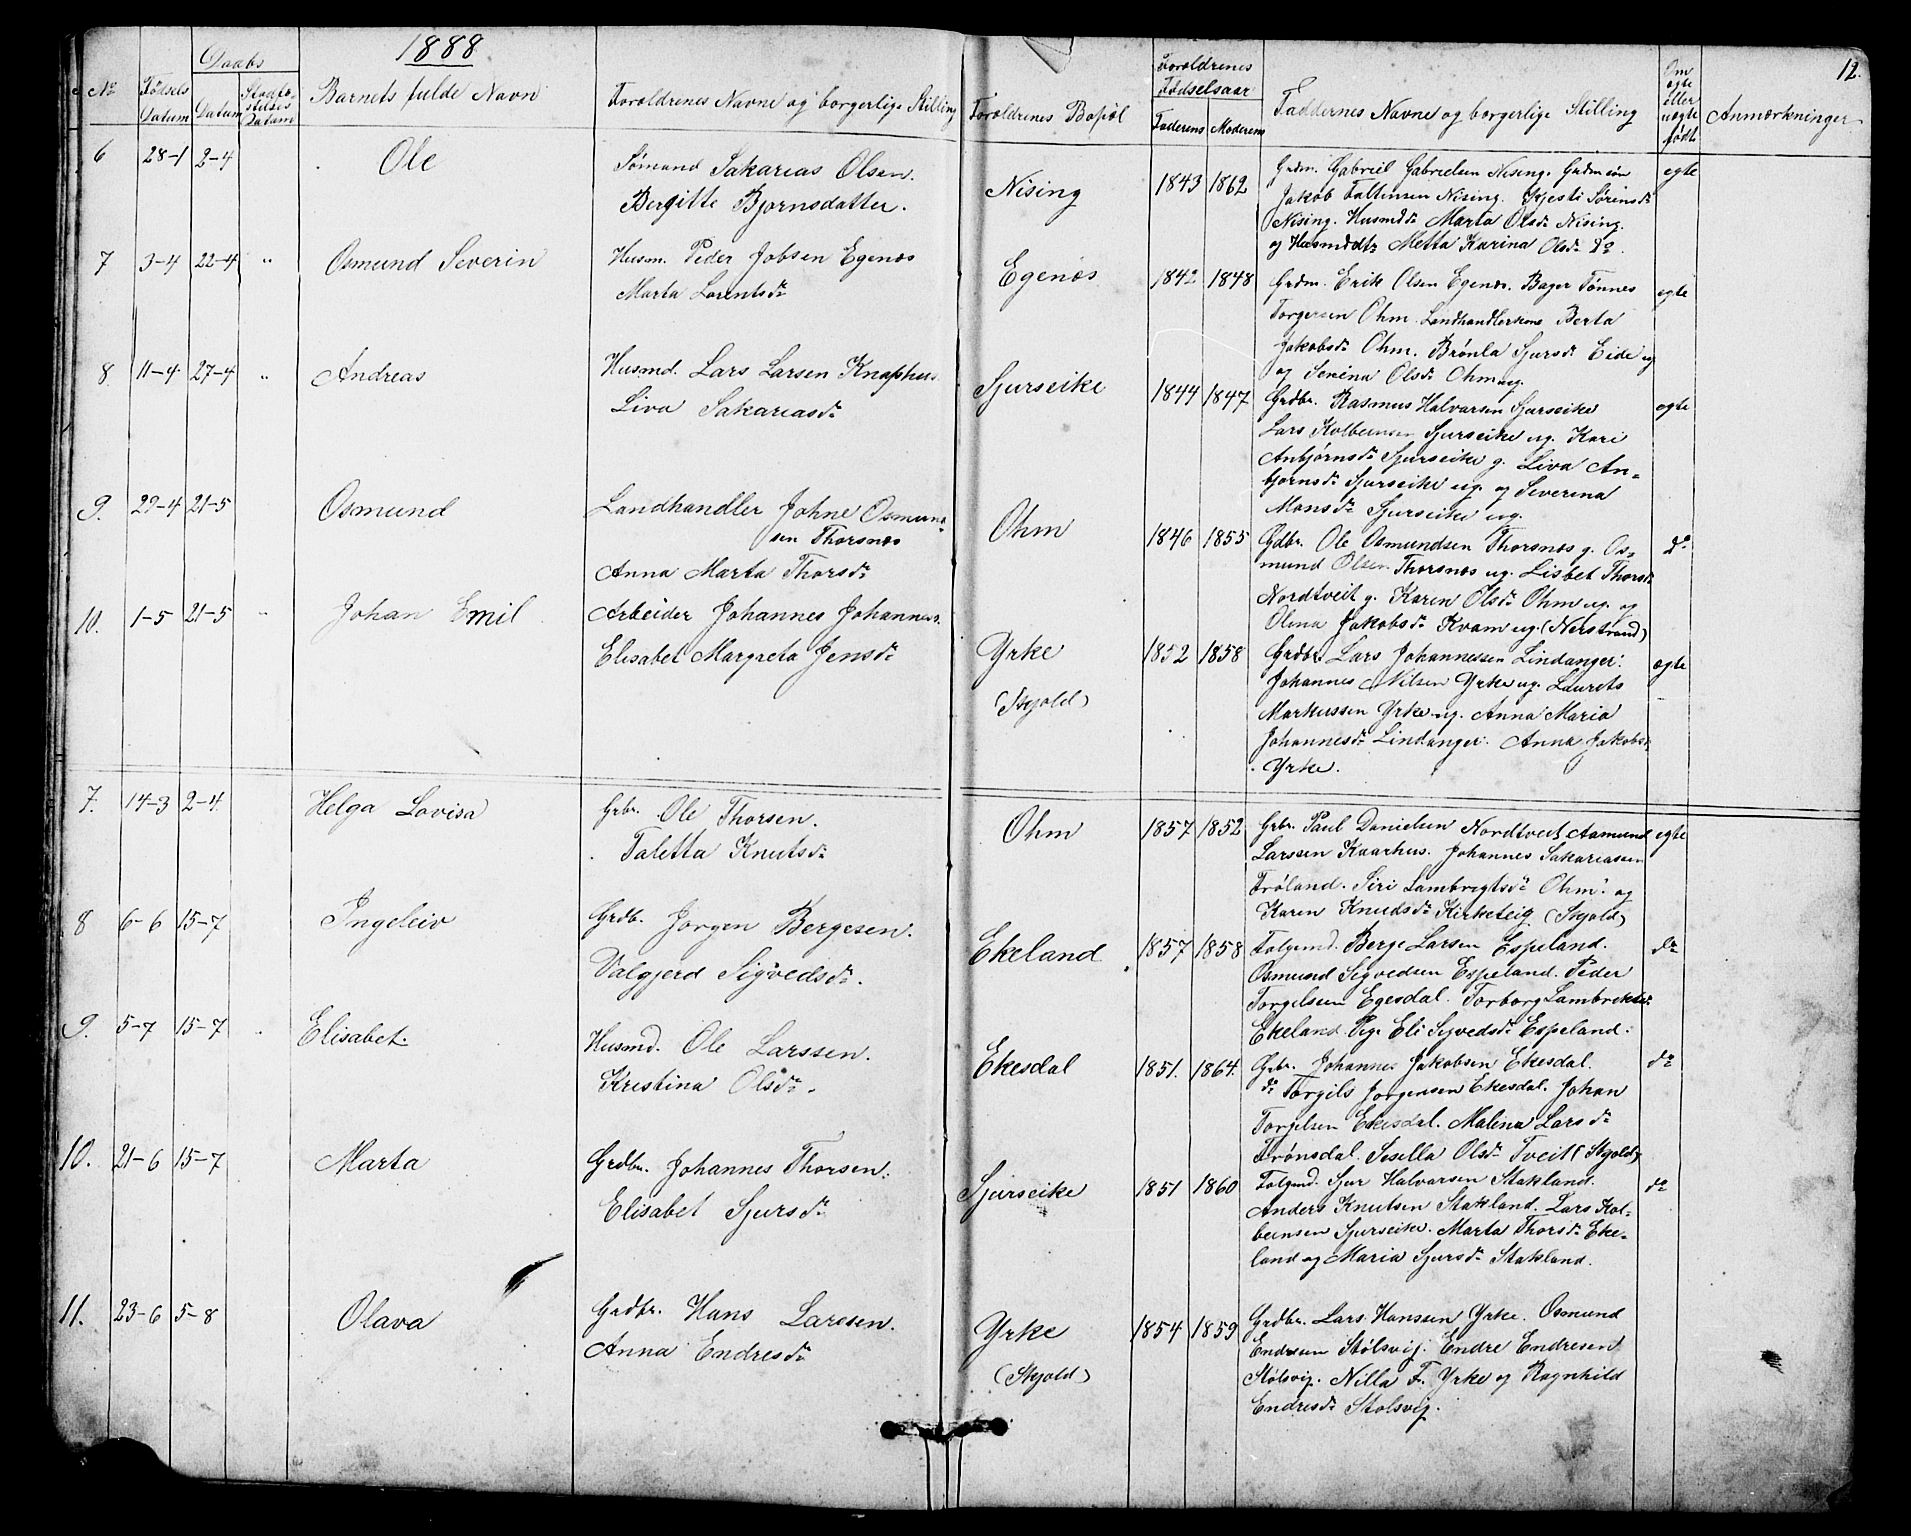 1888
12.
No
Fødsels Datum
Daabs Datum
Stadfæstelses Datum
Barnets fulde Navn
Forældrenes Navne og borgerlige Stilling
Forældrenes Bopæl
Forældrenes Fødselsaar
Faderens Moderens
Faddernes Navne og borgerlige Stilling
Om ægte eller uægte født
Anmærkninger
6 28-1 2-4 Ole
Sømand Sakarias Olsen.
Bergitte Bjørnsdatter.
Nising 1843 1862
Grdm. Gabriel Gabrielsen Nising. Grdmsøn
Jakob Faltinsen Nising. Kjesti Sørensdr
Nising. Husmdsdr Marta Olsdr Nising.
og Husmdsdtr Metta Karina Olsdr Do.
egte
7 3-4 22-4 " Osmund Severin
Husm. Peder Jobsen Egenæs
Marta Lorentsdr
Egenæs 1842 1848
Grdm. Erik Olsen Egenæs. Bager Tønnes
Torgersen Ohm. Landhandlerkone Berta
Jakobsdr Ohm. Brønla Sjursdr Eide ug
og Serina Olsdr Ohm ug.
egte
8. 11-4 27-4 " Andreas
Husmd. Lars Larsen Knaphus.
Liva Sakariasdr
Sjurseike 1844 1847
Grdbr. Rasmus Halvarsen Sjurseike
Lars Kolbeinsen Sjurseike ug. Kari
Anbjørnsdr Sjurseike g. Liva An-
bjørnsdr Sjurseike ug. og Severina
Monsdr Sjurseike ug.
egte
9. 29-4 21-5 Osmund
Landhandler Johne Osmund-
sen Thorsnæs
Anna Marta Thorsdr
Ohm 1846 1855
Gdbr. Ole Osmundsen Thorsnæs g. Os-
mund Olsen Thorsnæs ug. Lisbet Thorsdr
Nordtveit g. Karen Olsdr Ohm ug. og
Olena Jakobsdr Kvam ug. (Nerstrand)
do
10. 1-5 21-5 " Johan Emil
Arbeider Johannes Johannes.
Elisabet Margreta Jensdr
Yrke (Skjold) 1852 1858
Grdbr. Lars Johannessen Lindanger.
Johannes Nilsen Yrke ug. Laurets
Markussen Yrke ug. Anna Maria
Johannesdr Lindanger. Anna Jakobsdr
Yrke.
egte
7. 14-3 2-4. Helga Lovisa
Grbr. Ole Thorsen.
Taletta Knutsdr
Ohm 1857 1852
Grbr. Paul Danielsen Nordtveit Aamund
Larssen Kaarhus. Johannes Sakariassen
Frøland. Siri Lambregtsdr Ohm. og
Karen Knudsdr Kirketeig (Skjold)
egte
8 6-6 15-7 Ingeleiv
Grdb. Jørgen Bergesen.
Valgjerd Sigvedsdr.
Ekeland 1857 1858
Folgemd. Berge Larsen Espeland.
Osmund Sigvedsen Espeland. Peder
Torgelsen Egesdal. Torborg Lambrektsdr
Ekeland. Pige Eli Sigvedsdr Espeland.
do
9. 5-7 15-7 Elisabet.
Husmd. Ole Larssen.
Kristina Olsdr.
Ekesdal 1851. 1864.
Grbr. Johannes Jakobsen Ekesdal.
do Torgils Jørgensen Ekesdal. Johan
Torgelsen Ekesdal. Malena Larsdr
Frønsdal. Sesella Olsdr Tveit (Skjold)
do
10. 21-6 15-7 Marta
Grdbr. Johannes Thorsen.
Elisabet Sjursdr
Sjurseike 1851 1860
Folgmd. Sjur Halvarsen Stakland.
Anders Knutsen Stakland. Lars Kol-
beinsen Sjurseike. Marta Thorsdr Eke-
land og Maria Sjursdr Stakland.
do
11. 23-6 5-8 Olava
Grdbr. Hans Larssen.
Anna Endresdr
Yrke (Skjold) 1854 1859
Grdbr. Lars Hanssen Yrke. Osmund
Endresen Stølsvig. Endre Endresen
Stølsvig. Nilla F. Yrke og Ragnhild
Endresdr Stolsvig.